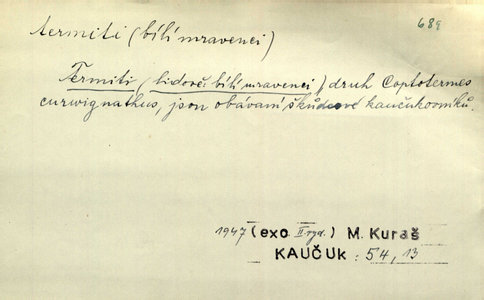 termiti (bílí mravenci)
689
Termiti (lidově: bílí mravenci) druh Coptotermes
curwignathus, jsou obávaní škůdcové kaučukovníků.
1947 (exc. II.vyd.) M. Kuraš
KAUČUK: 54, 13